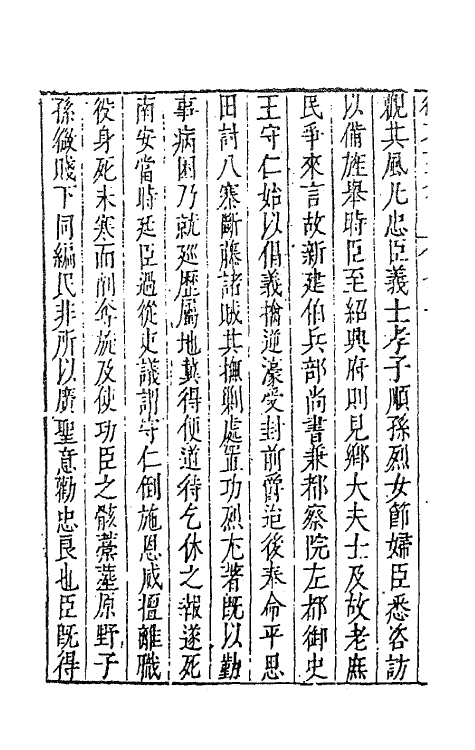 觀其風凡忠臣義士孝子順孫烈女節婦臣悉咨訪
以備旌舉時臣至紹興府則見鄉大夫士及故老庶
民爭來言故新建伯兵部尚書兼都察院左都御史
王守仁始以倡義擒逆濠受封前爵迨後奉命平思
田討八寨斷藤諸賊其撫剿處置功烈尤著既以勤
事病困乃就廵歷屬地冀得便道待乞休之報遂死
南安當時廷臣過從吏議訓守仁倒施恩威擅離職
役身死未寒而削奪旋及使功臣之骸藁葬原野子
孫微賤下同編民非所以廣聖意勸忠良也臣既得